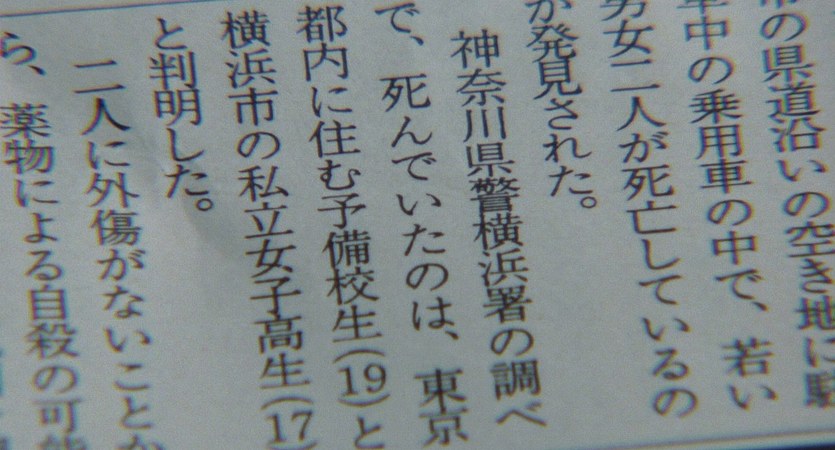 市の県道沿いの空き地に駐
車中の乗用車の中で、若い
男女二人が死亡しているの
が発見された。
神奈川県警横浜署の調べ
で、死んでいたのは、東京
都内に住む予備校生(19)と
横浜市の私立女子高生(17)
と判明した。
二人に外傷がないことか
ら、薬物による自殺の可能